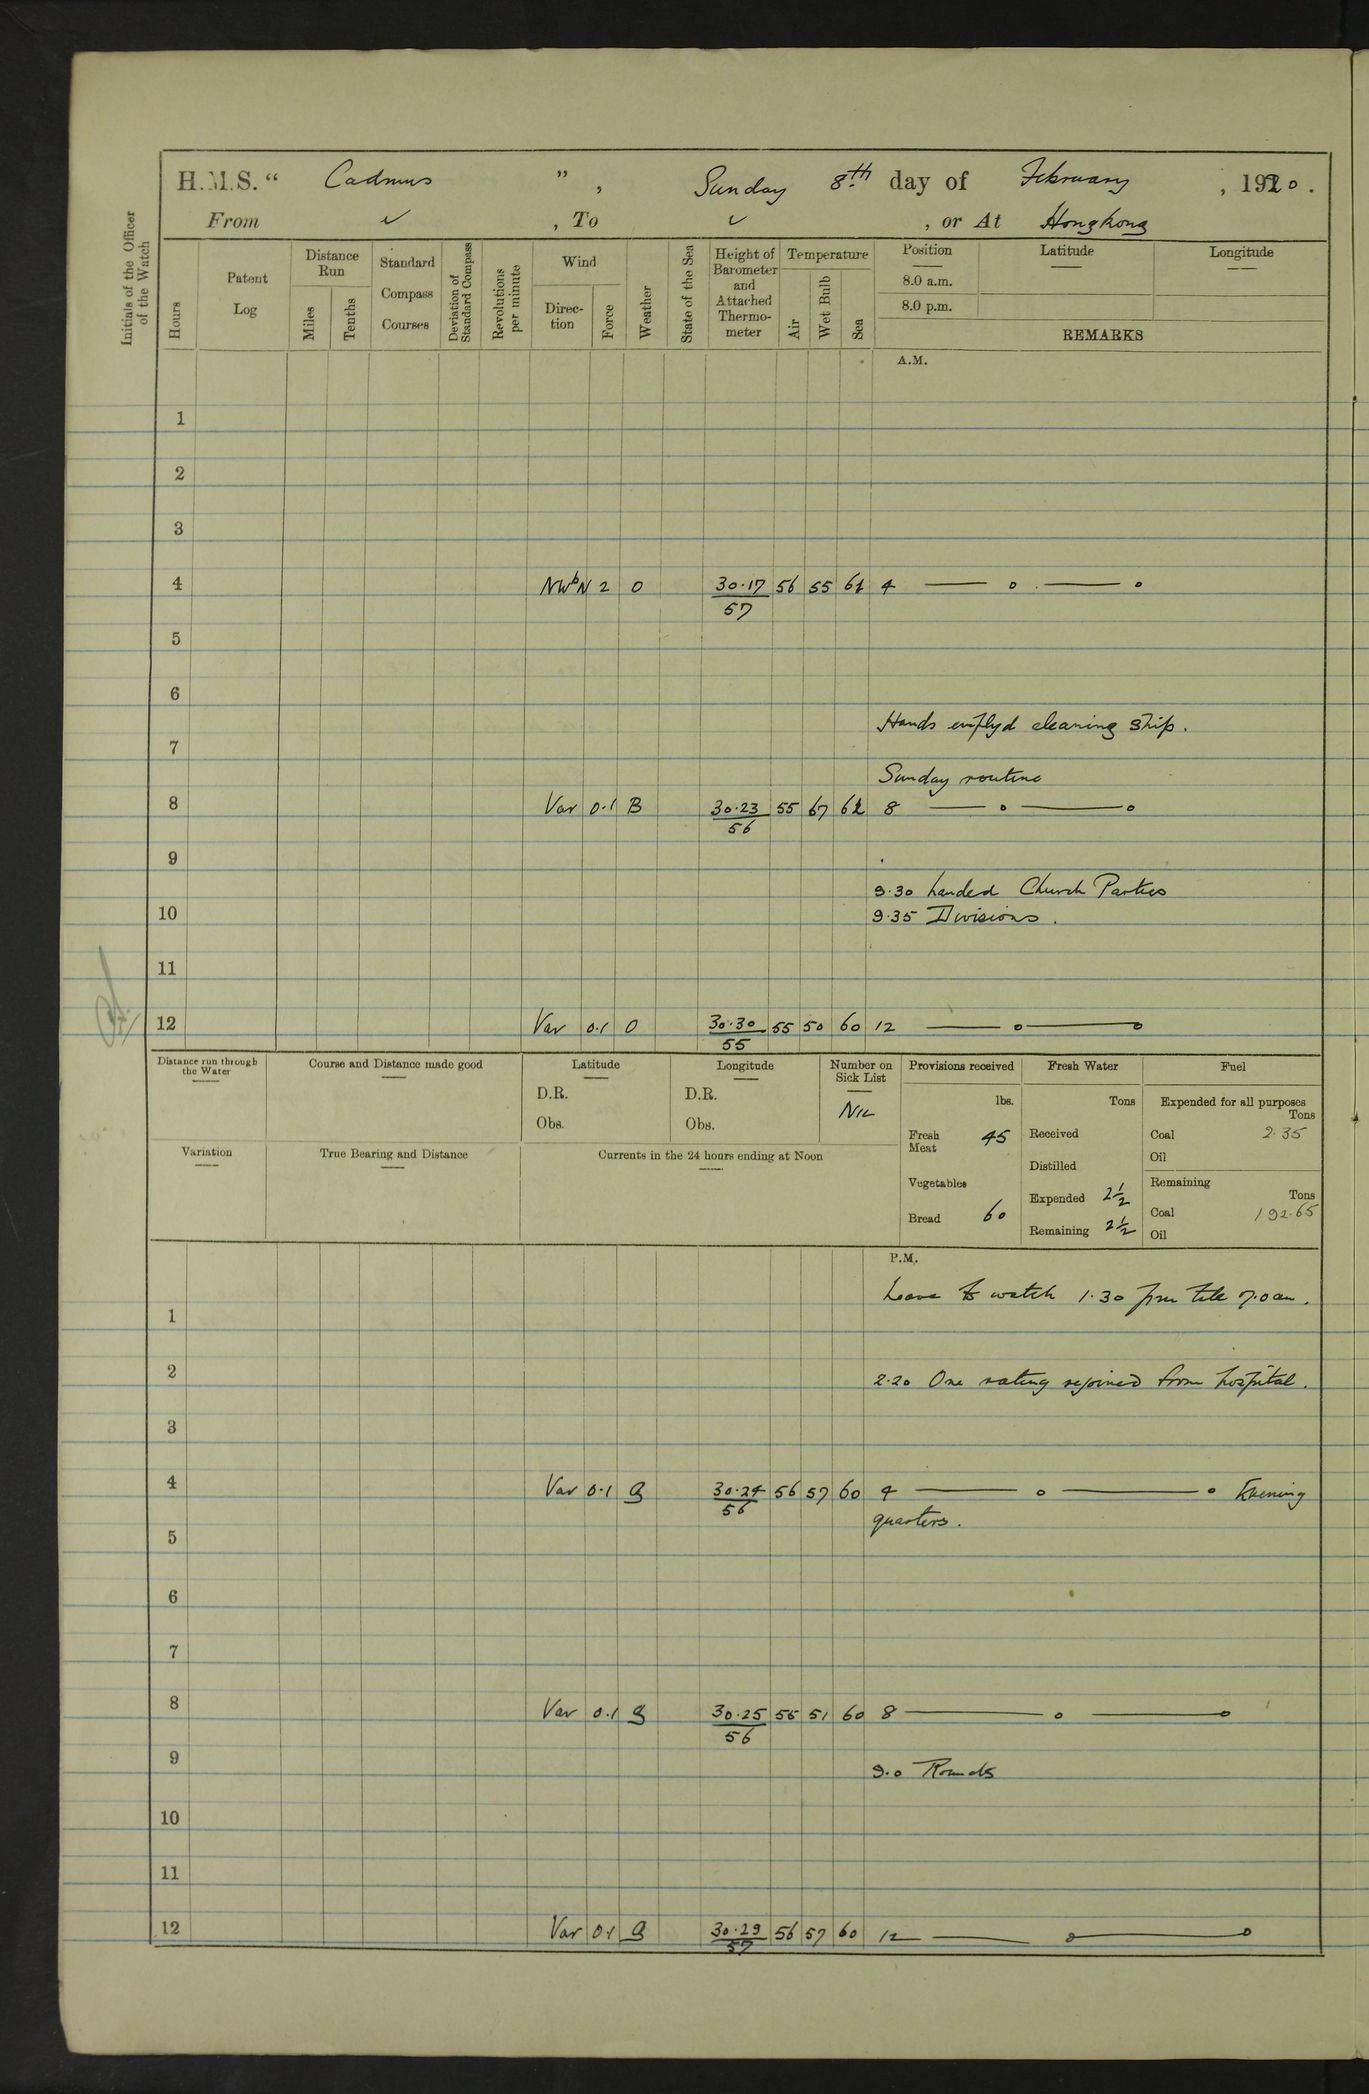 H.M.S. “ Cadmus ” , Sunday 8th day of February , 1920 .
From ✓ , To ✓ , or At Hongkong
Initials of the Officer of the Watch
Hours
Patent Log
Distance Run
Miles
Tenths
Standard Compass Courses
Deviation of Standard Compass
Revolutions per minute
Wind
Direc-tion
Force
Weather
State of the Sea
Height of Barometer and Attached Thermo-meter
Temperature
Air
Wet Bulb
Sea
Position
8.0 a.m.
8.0 p.m.
Latitude
Longitude
REMARKS
A.M.
1
2
3
4 NWbN 2 O 30.17 56 55 61 4 — o . — o
57
5
6
Hands emplyd cleaning ship.
7
Sunday routine
8 Var 0.1 B 30.23 55 67 62 8 — o — o
56
9
9.30 Landed Church Parties
10 9.35 Divisions.
11
12 Var 0.1 O 30.30 55 50 60 12 — o — o
55
Distance run through the Water
Course and Distance made good
Latitude
D.R.
Obs.
Longitude
D.R.
Obs.
Number on Sick List
NIL
Provisions received
lbs.
Fresh Meat 45
Vegetables
Bread 60
Fresh Water
Tons
Received
Distilled
Expended 2½
Remaining 2½
Fuel
Expended for all purposes
Tons
Coal 2.35
Oil
Remaining
Tons
Coal 192.65
Oil
Variation
True Bearing and Distance
Currents in the 24 hours ending at Noon
P.M.
Leave to watch 1.30 pm till 7.0 am.
1
2 2.20 One rating rejoined from hospital.
3
4 Var 0.1 g 30.24 56 57 60 4 — o — o Evening
56 quarters.
5
6
7
8 Var 0.1 g 30.25 55 51 60 8 — o — o
56
9 9.0 Rounds
10
11
12 Var 0.1 g 30.29 56 57 60 12 — o — o
57